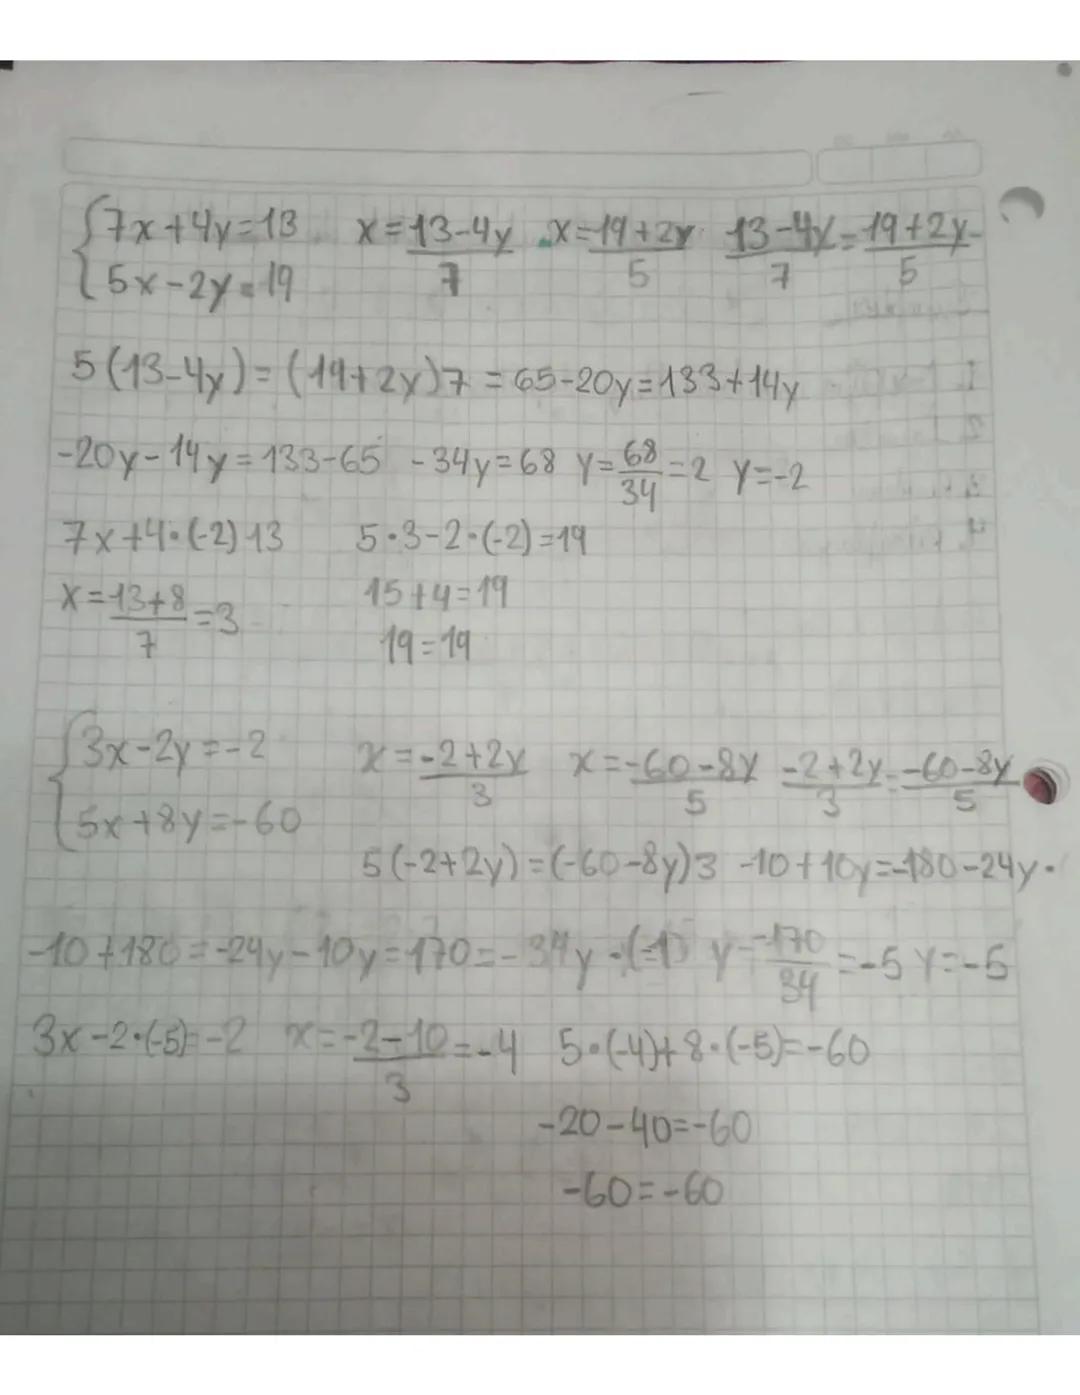 7x+4y=13 x=13-4y/7 x=19+2y/5 13-4y/7=19+2y/5
5x-2y=19
5(13-4y)=(19+2y)7=65-20y=133+14y
-20y-14y=133-65 -34y=68 y=68/34=2 y=-2
7x+4·(-2)13 5·3-2·(-2)=19
x=13+8/7=3 15+4=19
19=19
3x-2y=-2 x=-2+2y/3 x=-60-8y/5 -2+2y/3=-60-8y/5
5x+8y=-60
5(-2+2y)=(-60-8y)3 -10+10y=-180-24y·
-10+180=-24y-10y=170=-34y·(-1) y=-170/34=-5 y=-5
3x-2·(-5)=-2 x=-2-10/3=-4 5·(-4)+8·(-5)=-60
-20-40=-60
-60=-60